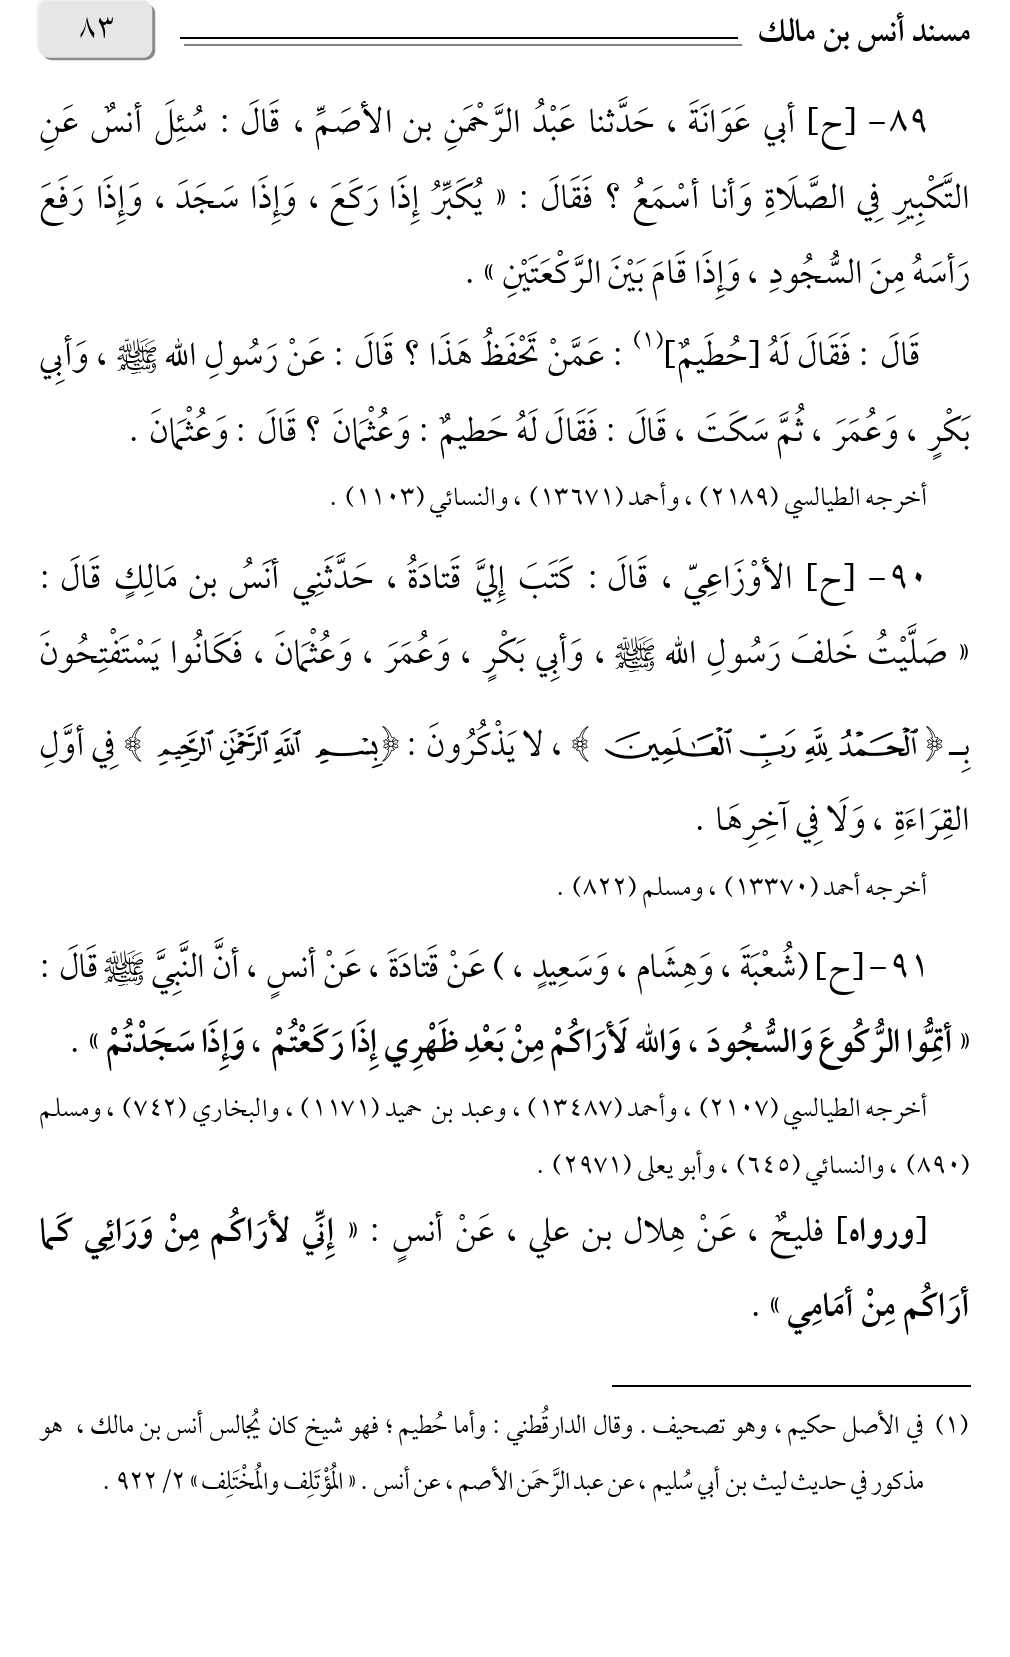 مسند أنس بن مالك ٨٣
٨٩- [ح] أبي عَوَانَةَ ، حَدَّثنا عَبْدُ الرَّحْمَنِ بن الأصَمِّ ، قَالَ : سُئِلَ أنسٌ عَنِ
التَّكْبِيرِ فِي الصَّلَاةِ وَأنا أسْمَعُ ؟ فَقَالَ : « يُكَبِّرُ إِذَا رَكَعَ ، وَإِذَا سَجَدَ ، وَإِذَا رَفَعَ
رَأسَهُ مِنَ السُّجُودِ ، وَإِذَا قَامَ بَيْنَ الرَّكْعَتَيْنِ » .
قَالَ : فَقَالَ لَهُ [حُطَيمٌ](١) : عَمَّنْ تَحْفَظُ هَذَا ؟ قَالَ : عَنْ رَسُولِ الله ﷺ ، وَأبِي
بَكْرٍ ، وَعُمَرَ ، ثُمَّ سَكَتَ ، قَالَ : فَقَالَ لَهُ حَطيمٌ : وَعُثْمَانَ ؟ قَالَ : وَعُثْمَانَ .
أخرجه الطيالسي (٢١٨٩) ، وأحمد (١٣٦٧١) ، والنسائي (١١٠٣) .
٩٠- [ح] الأوْزَاعِيّ ، قَالَ : كَتَبَ إِليَّ قَتادَةُ ، حَدَّثَنِي أنَسُ بن مَالِكٍ قَالَ :
« صَلَّيْتُ خَلفَ رَسُولِ الله ﷺ ، وَأبِي بَكْرٍ ، وَعُمَرَ ، وَعُثْمَانَ ، فَكَانُوا يَسْتَفْتِحُونَ
بِـ ﴿ ٱلْحَمْدُ لِلَّهِ رَبِّ ٱلْعَـٰلَمِينَ ﴾ ، لا يَذْكُرُونَ : ﴿بِسْمِ ٱللَّهِ ٱلرَّحْمَٰنِ ٱلرَّحِيمِ ﴾ فِي أوَّلِ
القِرَاءَةِ ، وَلَا فِي آخِرِهَا .
أخرجه أحمد (١٣٣٧٠) ، ومسلم (٨٢٢) .
٩١- [ح] (شُعْبَةَ ، وَهِشَام ، وَسَعِيدٍ ، ) عَنْ قَتادَةَ ، عَنْ أنسٍ ، أنَّ النَّبِيَّ ﷺ قَالَ :
« أتِمُّوا الرُّكُوعَ وَالسُّجُودَ ، وَالله لَأرَاكُمْ مِنْ بَعْدِ ظَهْرِي إِذَا رَكَعْتُمْ ، وَإِذَا سَجَدْتُمْ » .
أخرجه الطيالسي (٢١٠٧) ، وأحمد (١٣٤٨٧) ، وعبد بن حميد (١١٧١) ، والبخاري (٧٤٢) ، ومسلم
(٨٩٠) ، والنسائي (٦٤٥) ، وأبو يعلى (٢٩٧١) .
[ورواه] فليحٌ ، عَنْ هِلال بن علي ، عَنْ أنسٍ : « إِنِّي لأرَاكُم مِنْ وَرَائِي كَمَا
أرَاكُم مِنْ أمَامِي » .
(١) في الأصل حكيم ، وهو تصحيف . وقال الدارقُطني : وأما حُطيم ؛ فهو شيخ كان يُجالس أنس بن مالك ، هو
مذكور في حديث ليث بن أبي سُليم ، عن عبد الرَّحمَن الأصم ، عن أنس . « المُؤْتَلِف والمُخْتَلِف » ٢/ ٩٢٢ .